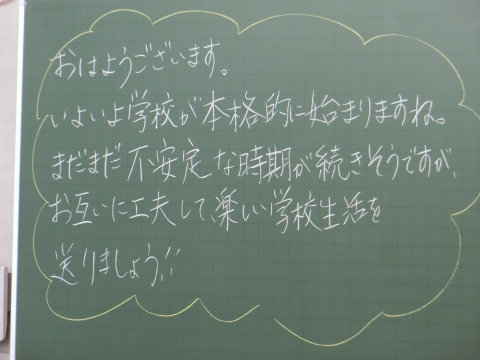 おはようございます。
いよいよ学校が本格的に始まりますね。
まだまだ不安定な時期が続きそうですが、
お互いに工夫して、楽しい学校生活を
送りましょう!!